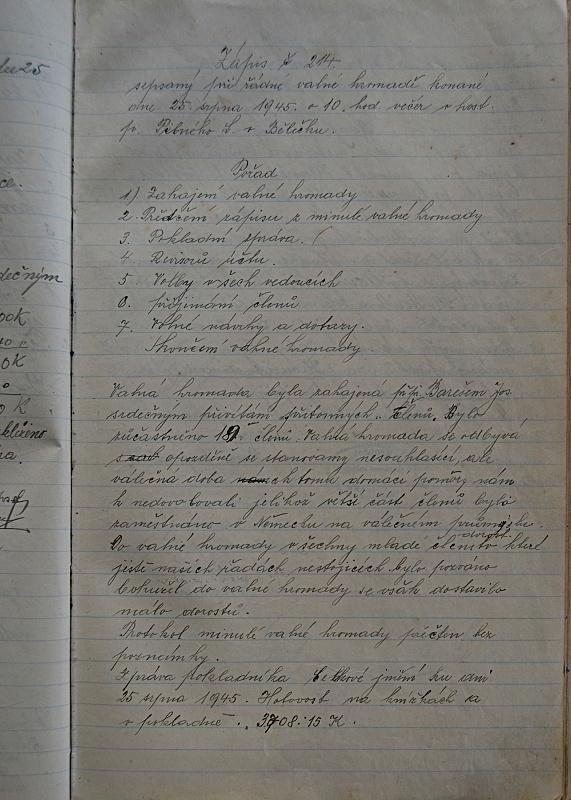 deu 25
ce.
dečným
00K
0K
0
0 K
klíženo
ra.
Zápis č 214.
sepsaný při řádné valné hromadě konané
dne 25. srpna 1945. o 10. hod. večer v host.
p. Pibného L. v Bělečku.
Pořad
1) Zahajení valné hromady
2. Předčení zápisu z minulé valné hromady
3. Pokladní zpráva.
4 Revisorů účtu.
5 Volby všech vedoucích
6. přijimání členů
7. Volné návrhy a dotazy.
Skončení valné hromady.
Valná hromada byla zahajená př. Barešem Jos
srdečným přivítám přítomných členů. Bylo
zůčastněno 19 členů. Valná hromada se odbyvá
opozděně se stanovamy nesouhlasící, ale
válečná doba k tomu domácí poměry nám
k nedovolovali jelikož větší část členů byla
zaměstnáno v Německu na válečném průmyslu.
dorost.
Do valné hromady všechny mladé členstvo které
jistě našich řadách nestojících bylo pozváno
bohužel do valné hromady se však dostavilo
málo dorostů.
Protokol minulé valné hromady přečten bez
poznámky.
Zpráva pokladníka Celkové jmění ku dni
25 srpna 1945. Hotovost na knížkách a
v pokladně. 3708:15 K.